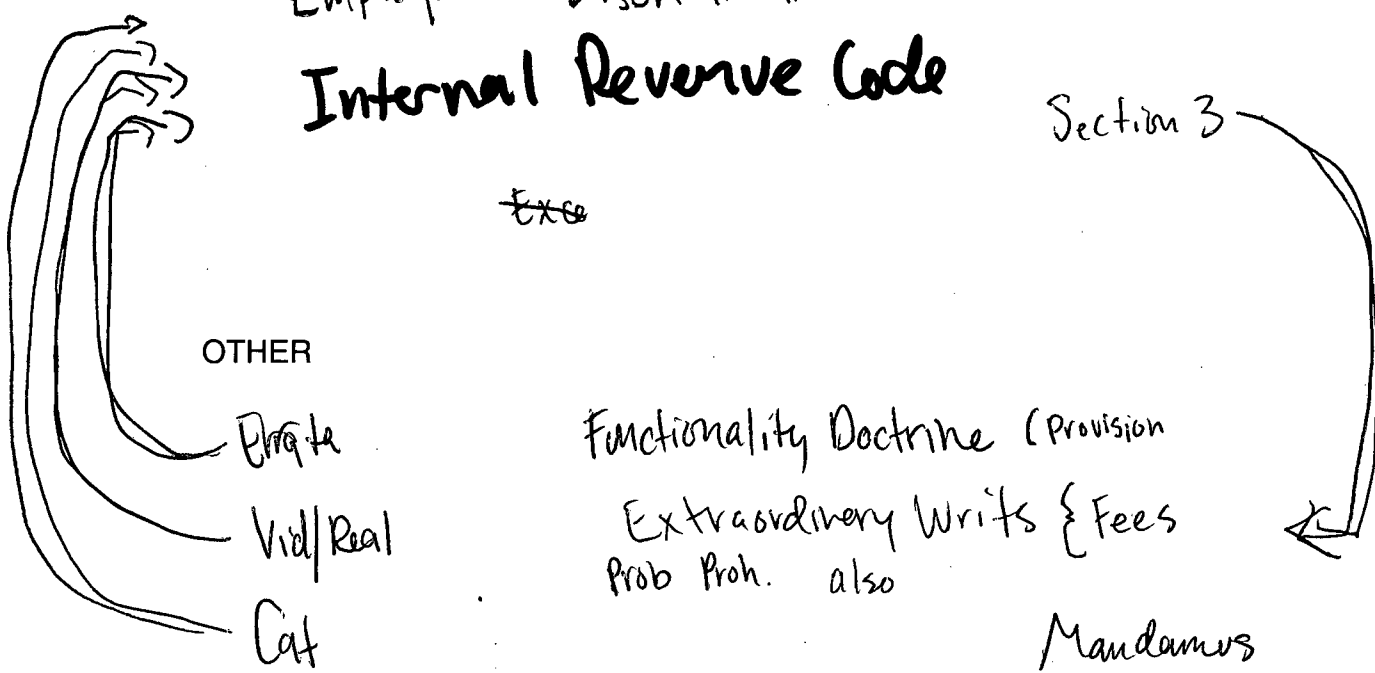 Internal Revenue Code
Section 3
Exce
OTHER
Errata Functionality Doctrine (Provision
Vid/Real Extraordinary Writs { Fees
Prob Proh. also
Cat Mandamus